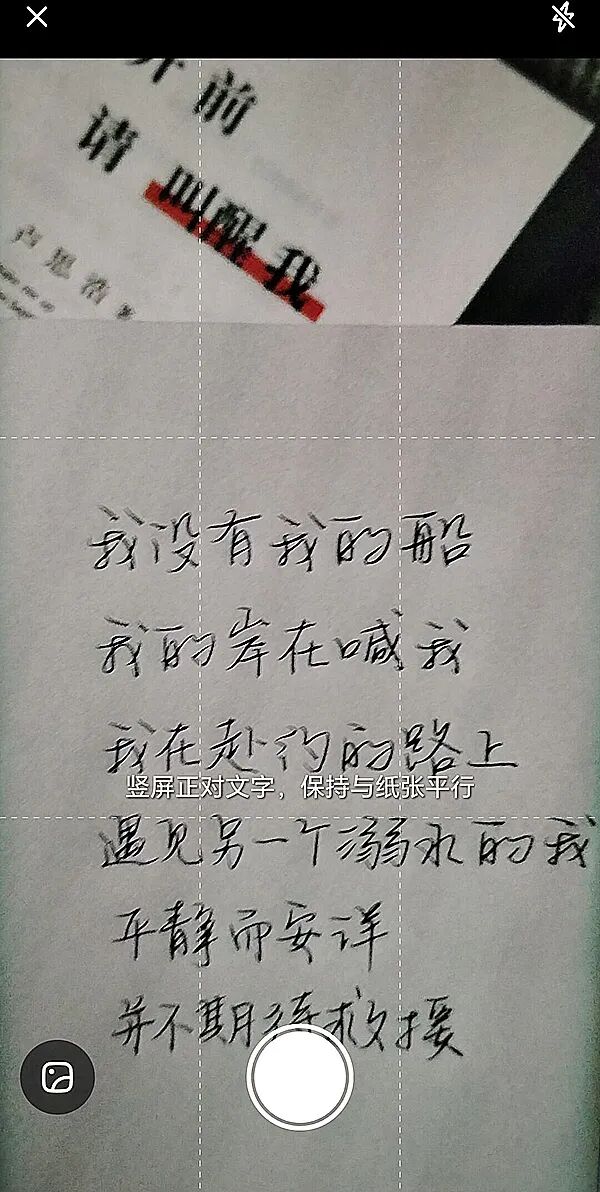 开前
请 叫醒我
卢思浩 著
我没有我的船
我的岸在喊我
我在赴约的路上
竖屏正对文字，保持与纸张平行
遇见另一个溺水的我
平静而安详
并不期待救援